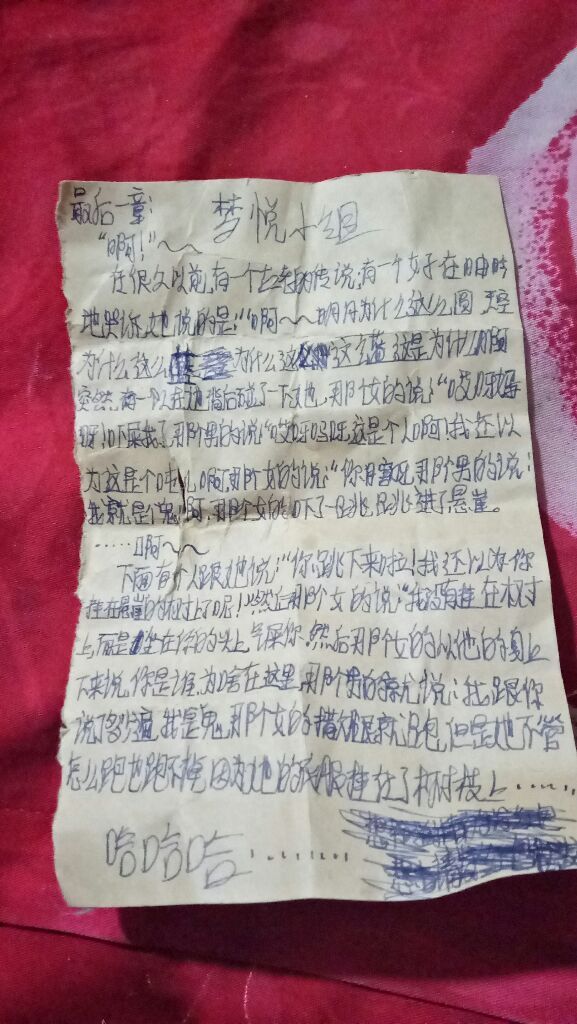 最后一章: 梦悦小组
“啊!”～～
在很久以前,有一个古老的传说,有一个女子在自由
地哭泣,她说的是:“啊～～明月为什么这么圆 天空
为什么这么 为什么这 这么 这是为什么啊
突然,有一个人在她背后碰了一下她,那个女的说:“哎呀妈
呀!吓屎我了,那个男的说“哎呀吗呀,这是个人啊!我还以
为这是个 啊,那个女的说:“你 ,那个男的说:
我就是个鬼!啊,那个女的吓了一跳,跳进了悬崖。
……啊～～
下面有个人跟她说:“你跳下来啦!我还以为你
挂在悬崖的树上了呢!”然后那个女的说:“我没有挂在树
上,而是坐在你的头上,气屎你,然后那个女的从他的身上
下来说,你是谁,为啥在这里,那个男的 说:我跟你
说了多少遍,我是鬼,那个女的 就跑,但是她不管
怎么跑也跑不掉,因为她的衣服挂在了树枝上……
哈哈哈………